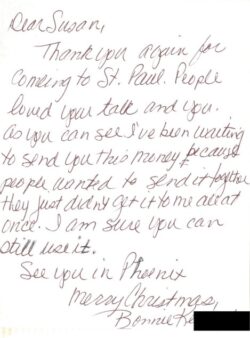 Dear Susan,
Thank you again for
coming to St. Paul. People
loved your talk and you.
As you can see I've been waiting
to send you this money because
people wanted to send it together
they just didn't get it to me all at
once. I am sure you can
still use it.
See you in Phoenix
Merry Christmas,
Bonnie